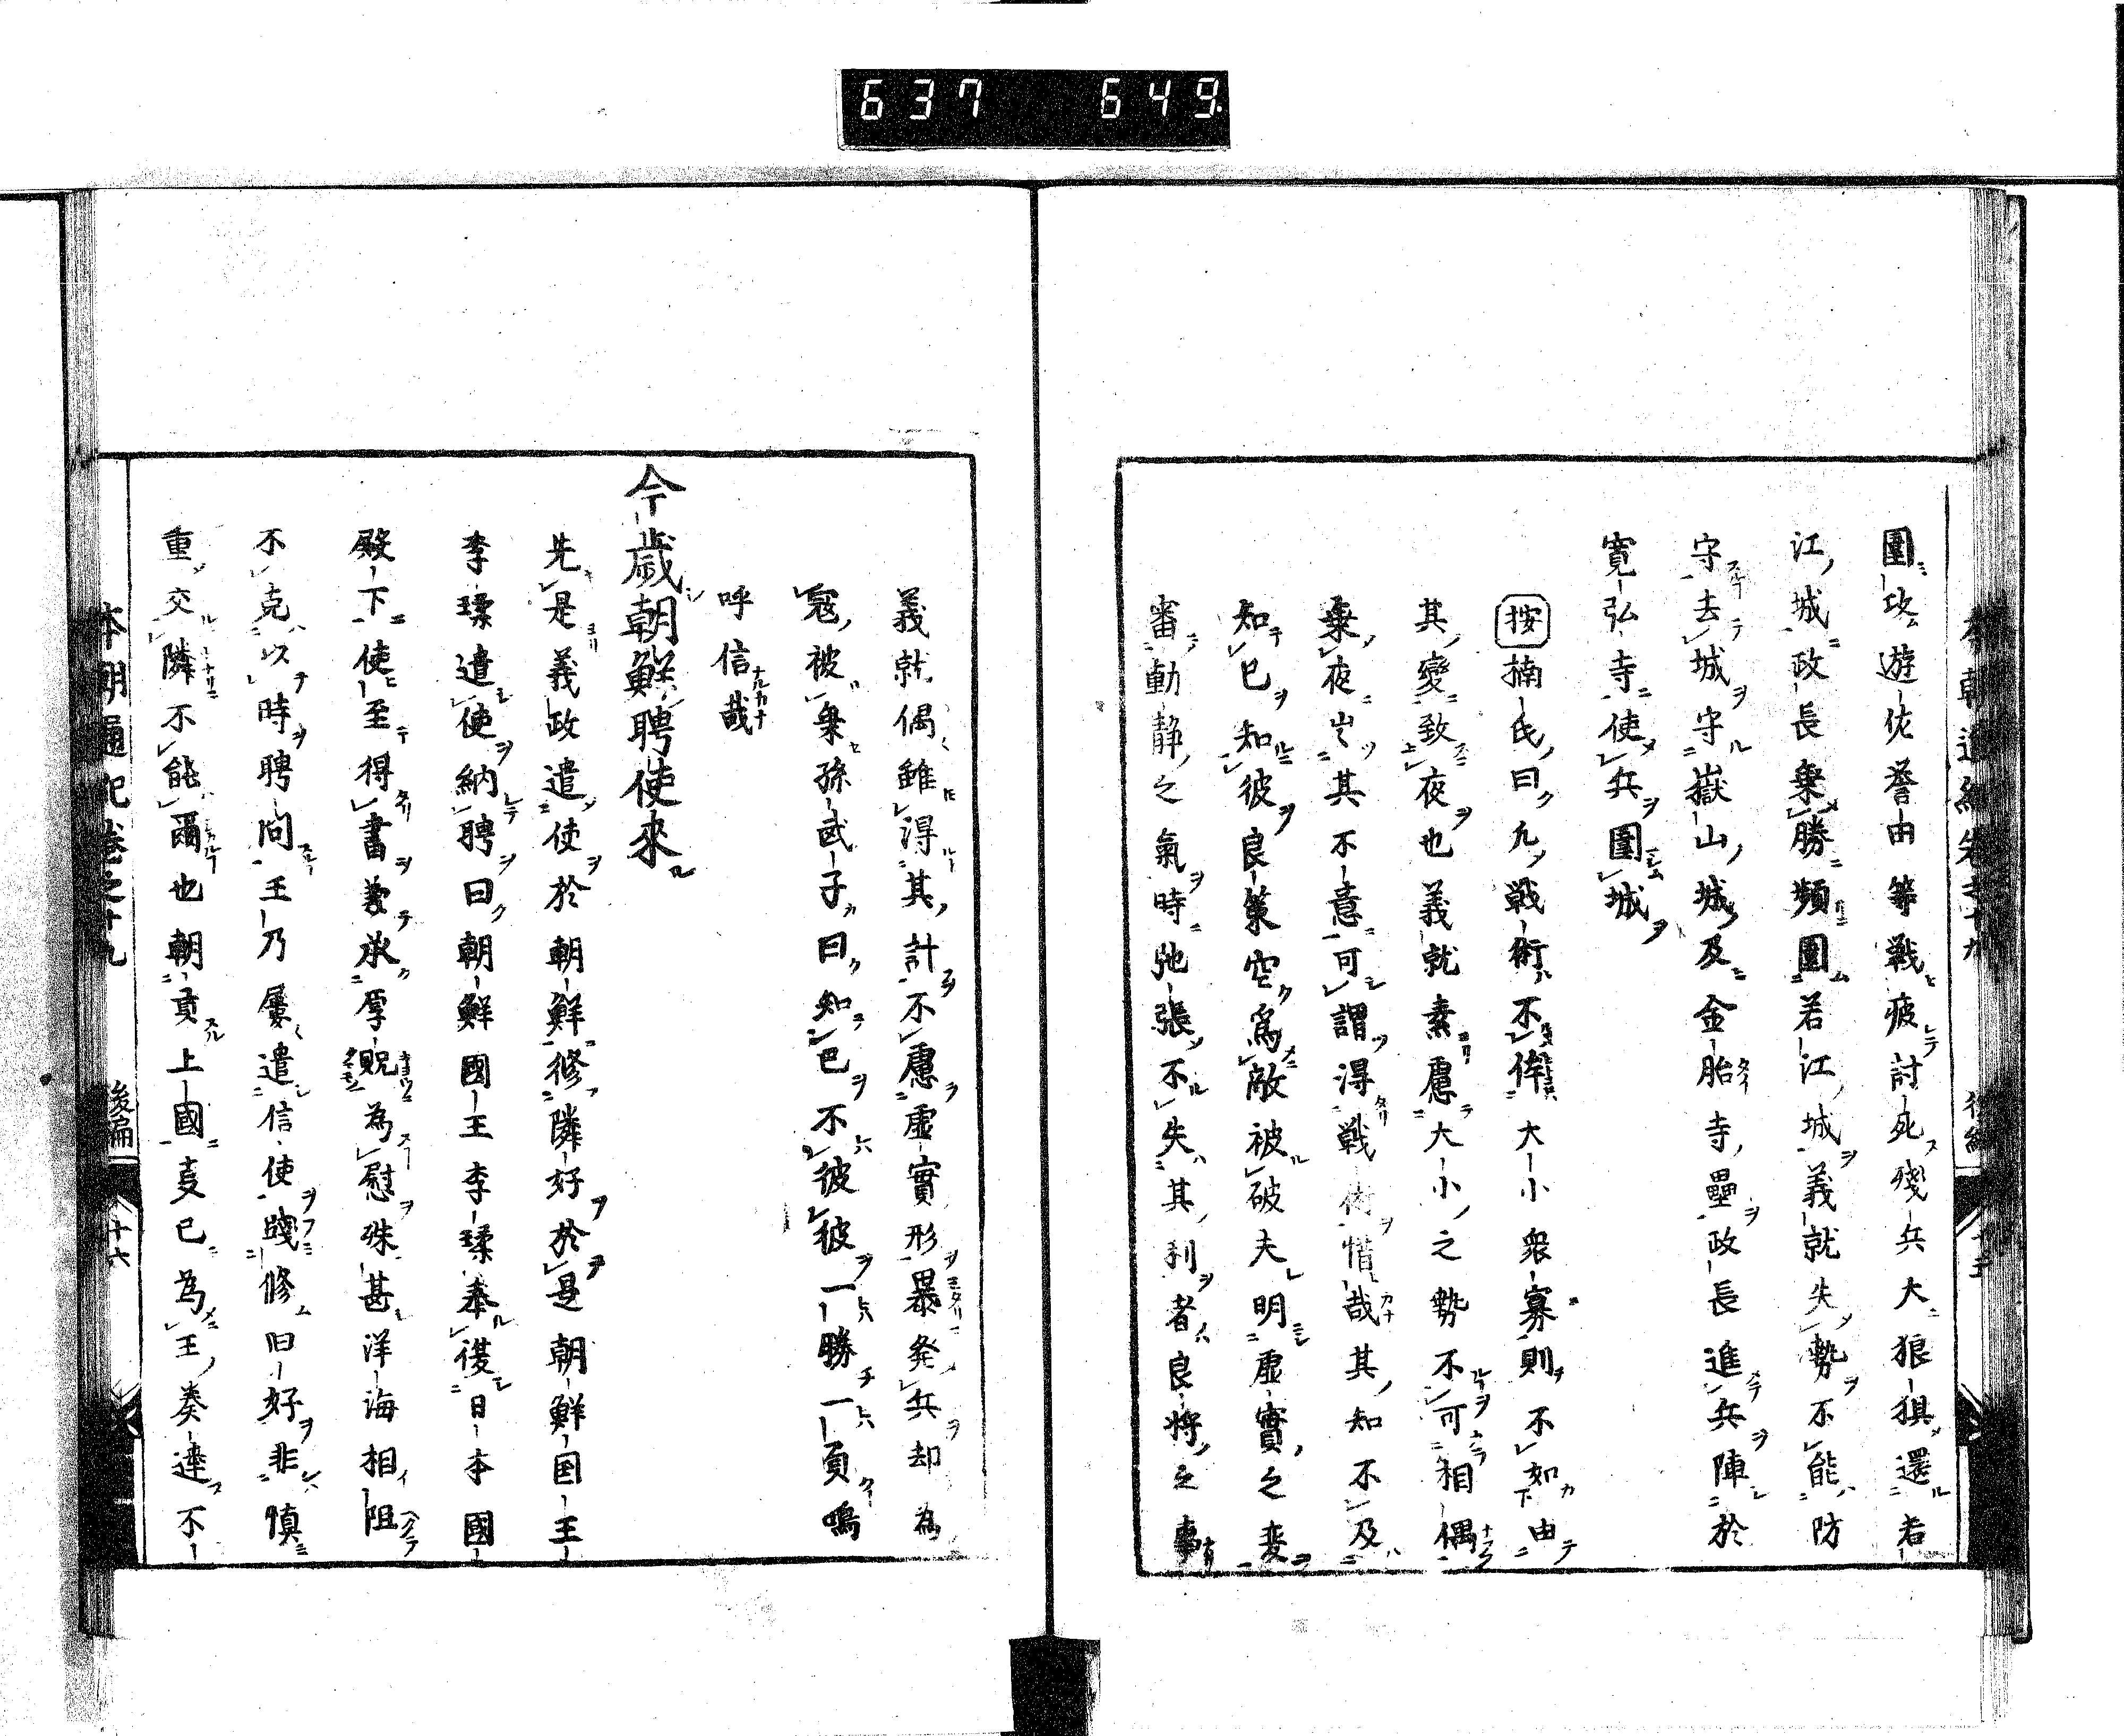 637 649
圍攻遊佐誉田等戦疲討死殘兵大狼狽還若
江城政長乗勝頻圍若江城義就失勢不能防
守去城守嶽山城及金胎寺壘政長進兵陣於
寛弘寺使兵圍城
按楠氏曰凢戦術不倖大小衆寡則不如由
其變致夜也義就素慮大小之勢不可相偶
乗夜出其不意可謂得戦術惜哉其知不及
知已知彼良策空爲敵被破夫明虚實之変
審動静之氣時弛張不失其利者良将之事
義就偶雖得其計不慮虚實形暴発兵却為
寇被乗孫武子曰知已不彼彼一勝一負嗚
呼信哉
今歳朝鮮聘使來
先是義政遣使於朝鮮修隣好於是朝鮮国王
李瑈遣使納聘曰朝鮮國王李瑈奉復日本國
殿下使至得書兼承厚貺為慰殊甚洋海相阻
不克以時聘問王乃屢遣信使牋修旧好非慎
重交隣不能爾也朝貢上國㕝已為王奏達不
本朝通紀巻之十九 後編 十六